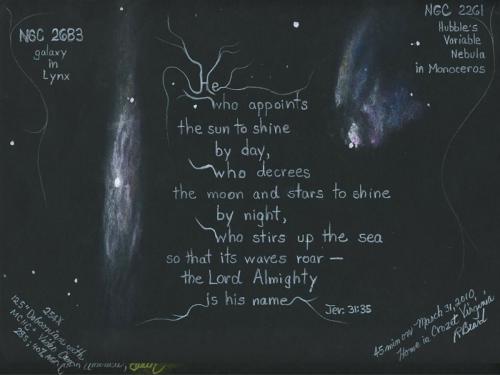 NGC 2683
galaxy
in
Lynx
NGC 2261
Hubble's
Variable
Nebula
in Monoceros
He
who appoints
the sun to shine
by day,
who decrees
the moon and stars to shine
by night,
who stirs up the sea
so that its waves roar —
the Lord Almighty
is his name
Jer. 31:35
254X
12.5" Dobsonian with
45 min on March 31, 2010,
Home in Crozet, Virginia
R Beard